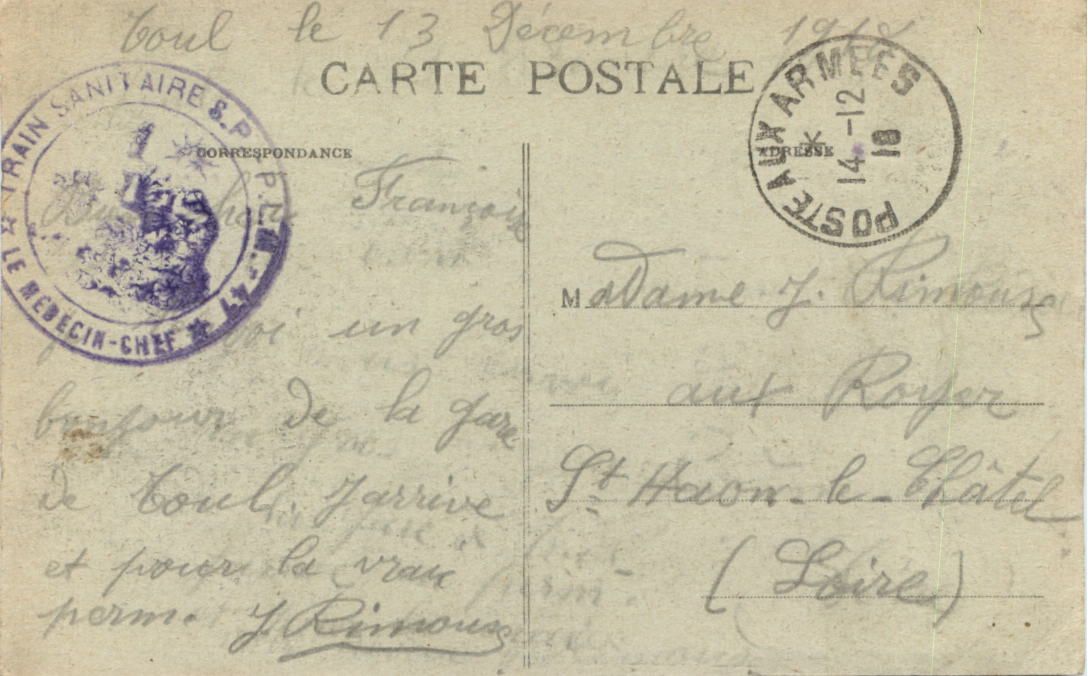 Toul le 13 Décembre 1918
CARTE POSTALE
TRAIN SANITAIRE S.P.
LE MÉDECIN-CHEF
POSTE AUX ARMEES
14-12
18
CORRESPONDANCE
ADRESSE
François
un gros
bonjour de la gare
de Toul. J'arrive
et pour la vraie
perm. J. Rimoux
Madame J. Rimoux
aux Royer
St Haon-le-Châtel
(Loire)